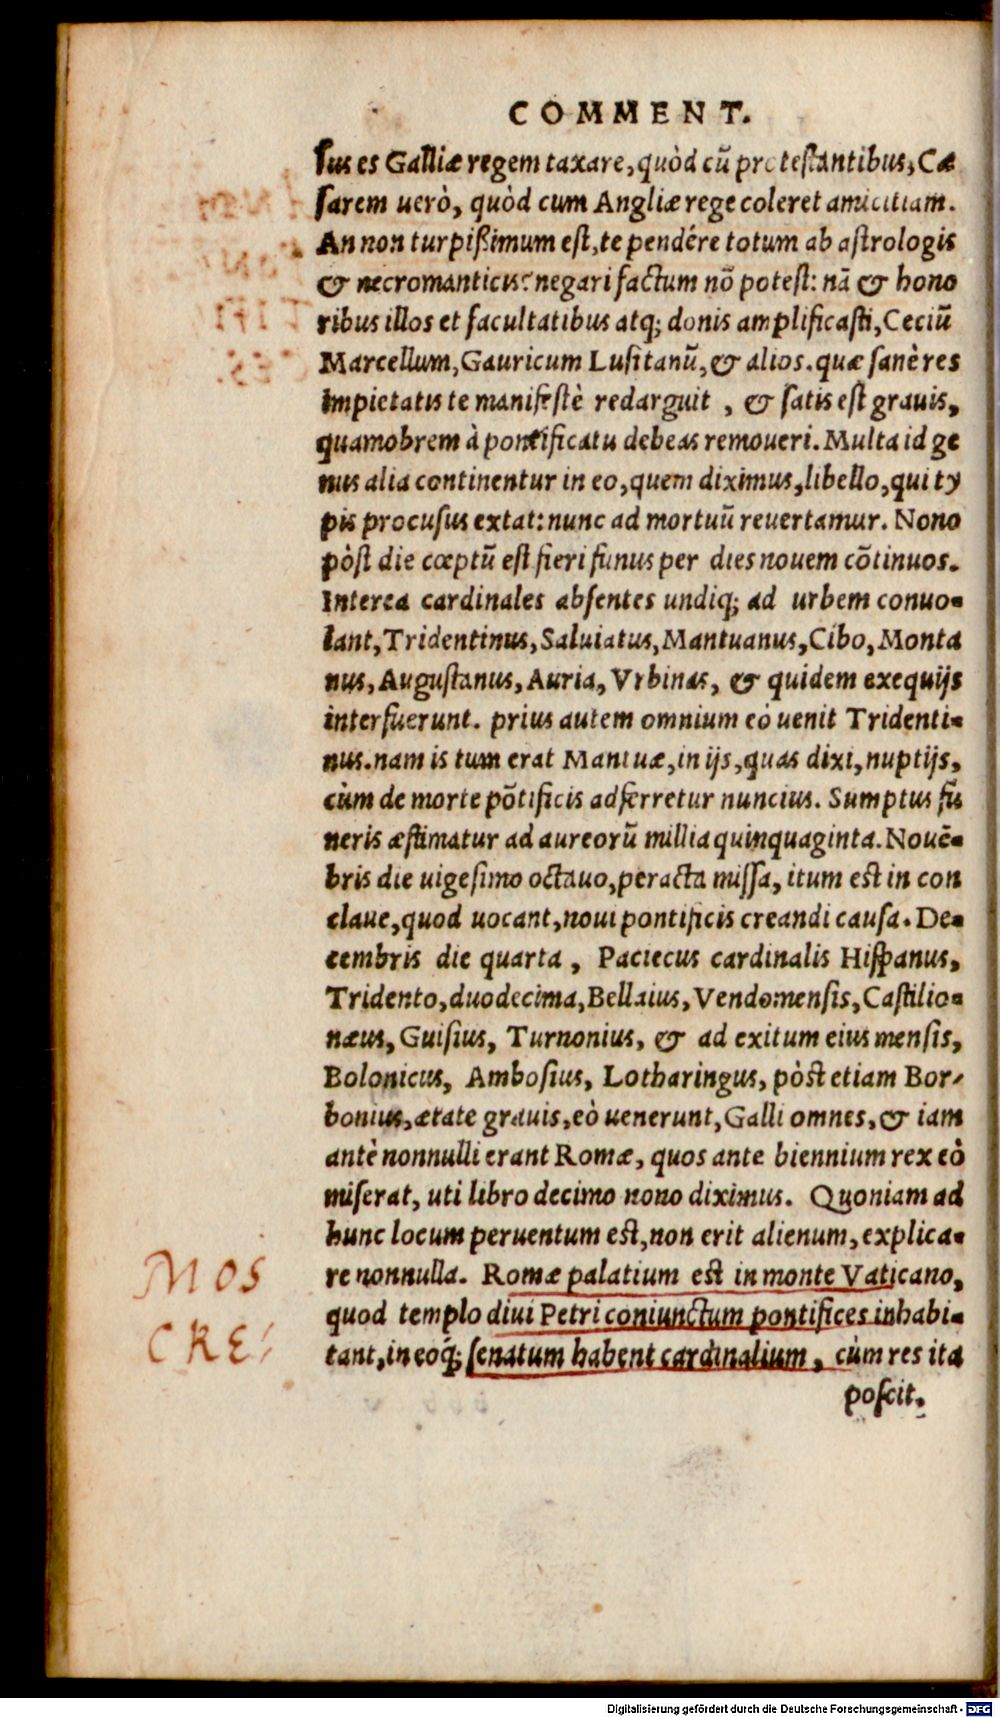 COMMENT.
sus es Galliæ regem taxare, quòd cū protestantibus, Cæ
sarem uerò, quòd cum Angliæ rege coleret amicitiam.
An non turpißimum est, te pendére totum ab astrologis
& necromanticis? negari factum nō potest: nā & hono
ribus illos et facultatibus atq; donis amplificasti, Ceciū
Marcellum, Gauricum Lusitanū, & alios. quæ sanè res
impietatis te manifestè redarguit, & satis est grauis,
quamobrem à pontificatu debeas remoueri. Multa id ge
nus alia continentur in eo, quem diximus, libello, qui ty
pis procusus extat: nunc ad mortuū reuertamur. Nono
pòst die cœptū est fieri funus per dies nouem cōtinuos.
Interea cardinales absentes undiq; ad urbem conuo-
lant, Tridentinus, Saluiatus, Mantuanus, Cibo, Monta
nus, Augustanus, Auria, Vrbinas, & quidem exequijs
interfuerunt. prius autem omnium eò uenit Tridenti-
nus. nam is tum erat Mantuæ, in ijs, quas dixi, nuptijs,
cùm de morte pōtificis adferretur nuncius. Sumptus fu
neris æstimatur ad aureorū millia quinquaginta. Nouē-
bris die uigesimo octauo, peracta missa, itum est in con
claue, quod uocant, noui pontificis creandi causa. De-
cembris die quarta, Paciecus cardinalis Hispanus,
Tridento, duodecima, Bellaius, Vendomensis, Castilio-
næus, Guisius, Turnonius, & ad exitum eius mensis,
Bolonicus, Ambosius, Lotharingus, pòst etiam Bor-
bonius, ætate grauis, eò uenerunt, Galli omnes, & iam
antè nonnulli erant Romæ, quos ante biennium rex eò
miserat, uti libro decimo nono diximus. Quoniam ad
hunc locum peruentum est, non erit alienum, explica-
re nonnulla. Romæ palatium est in monte Vaticano,
quod templo diui Petri coniunctum pontifices inhabi-
tant, in eoq́; senatum habent cardinalium, cùm res ita
poscit.
MOS
CRE/
Digitalisierung gefördert durch die Deutsche Forschungsgemeinschaft - DFG